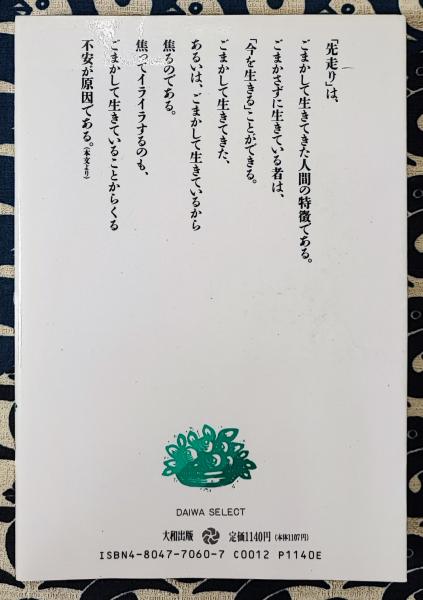 「先走り」は、
ごまかして生きてきた人間の特徴である。
ごまかさずに生きている者は、
「今を生きる」ことができる。
ごまかして生きてきた、
あるいは、ごまかして生きているから
焦るのである。
焦ってイライラするのも、
ごまかして生きていることからくる
不安が原因である。(本文より)
DAIWA SELECT
大和出版 定価1140円(本体1107円)
ISBN4-8047-7060-7 C0012 P1140E